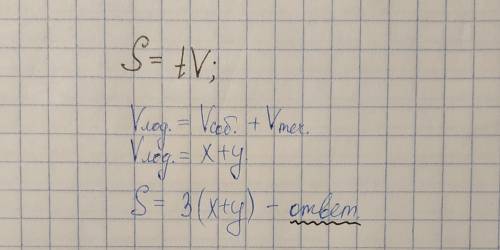 S = tV;
Vлод. = Vсоб. + Vтеч.
Vлод. = x+y
S = 3(x+y) - ответ